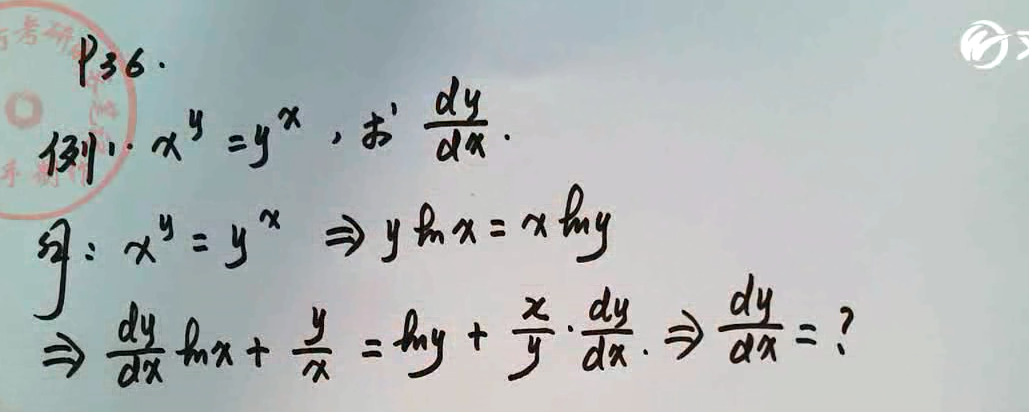 P36.
例1. x^y = y^x, 求 dy/dx.
解: x^y = y^x ⇒ y ln x = x ln y
⇒ dy/dx ln x + y/x = ln y + x/y · dy/dx. ⇒ dy/dx = ?